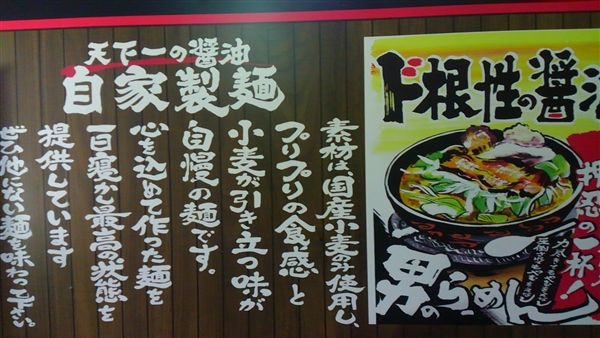 天下一の醤油
自家製麺
素材は、国産小麦のみ使用し、
プリプリの食感と
小麦が引き立つ味が
自慢の麺です。
心を込めて作った麺を
一日寝かし最高の状態を
提供しています
ぜひ他にない麺を味わって下さい。
ド根性の醤油
押忍の一杯!
男のらーめん